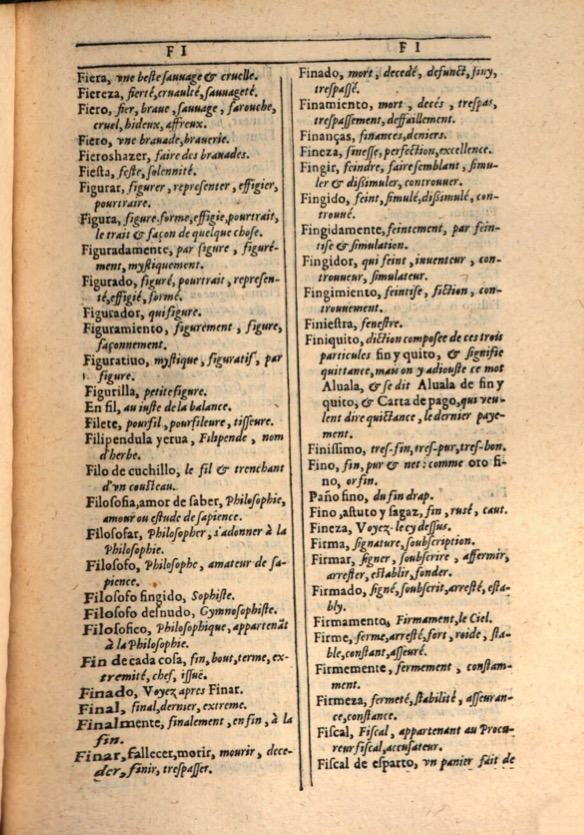 F I
Fiera, vne beste sauuage & cruelle.
Fiereza, fierté, cruaulté, sauuageté.
Fiero, fier, braue, sauuage, farouche,
cruel, hideux, affreux.
Fiero, vne brauade, brauerie.
Fieroshazer, faire des brauades.
Fiesta, feste, solennité.
Figurar, figurer, representer, effigier,
pourtraire.
Figura, figure, forme, effigie, pourtrait,
le trait & façon de quelque chose.
Figuradamente, par figure, figuré-
ment, mystiquement.
Figurado, figuré, pourtrait, represen-
té, effigié, formé.
Figurador, qui figure.
Figuramiento, figurement, figure,
façonnement.
Figuratiuo, mystique, figuratif, par
figure.
Figurilla, petite figure.
En fil, au iuste de la balance.
Filete, pourfil, pourfileure, tisseure.
Filipendula yerua, Filipende, nom
d'herbe.
Filo de cuchillo, le fil & trenchant
d'vn cousteau.
Filosofia, amor de saber, Philosophie,
amour ou estude de sapience.
Filosofar, Philosopher, s'adonner à la
Philosophie.
Filosofo, Philosophe, amateur de sa-
pience.
Filosofo fingido, Sophiste.
Filosofo desnudo, Gymnosophiste.
Filosofico, Philosophique, appartenãt
à la Philosophie.
Fin de cada cosa, fin, bout, terme, ex-
tremité, chef, issuë.
Finado, Voyez apres Finar.
Final, final, dernier, extreme.
Finalmente, finalement, en fin, à la
fin.
Finar, fallecer, morir, mourir, dece-
der, finir, trespasser.
F I
Finado, mort, decedé, defunct, finy,
trespassé.
Finamiento, mort, decés, trespas,
trespassement, deffaillement.
Finanças, finances, deniers.
Fineza, finesse, perfection, excellence.
Fingir, feindre, faire semblant, simu-
ler & dissimuler, controuuer.
Fingido, feint, simulé, dissimulé, con-
trouué.
Fingidamente, feintement, par fein-
tise & simulation.
Fingidor, qui feint, inuenteur, con-
trouueur, simulateur.
Fingimiento, feintise, fiction, con-
trouuement.
Finiestra, fenestre.
Finiquito, diction composee de ces trois
particules fin y quito, & signifie
quittance, mais on y adiouste ce mot
Aluala, & se dit Aluala de fin y
quito, & Carta de pago, qui veu-
lent dire quictance, le dernier paye-
ment.
Finissimo, tres-fin, tres-pur, tres-bon.
Fino, fin, pur & net: comme oro fi-
no, or fin.
Paño fino, du fin drap.
Fino, astuto y sagaz, fin, rusé, caut.
Fineza, Voyez-le cy dessus.
Firma, signature, soubscription.
Firmar, signer, soubscrire, affermir,
arrester, establir, fonder.
Firmado, signé, soubscrit, arresté, esta-
bly.
Firmamento, Firmament, le Ciel.
Firme, ferme, arresté, fort, roide, sta-
ble, constant, asseuré.
Firmemente, fermement, constam-
ment.
Firmeza, fermeté, stabilité, asseuran-
ce, constance.
Fiscal, Fiscal, appartenant au Procu-
reur fiscal, accusateur.
Fiscal de esparto, vn panier fait de